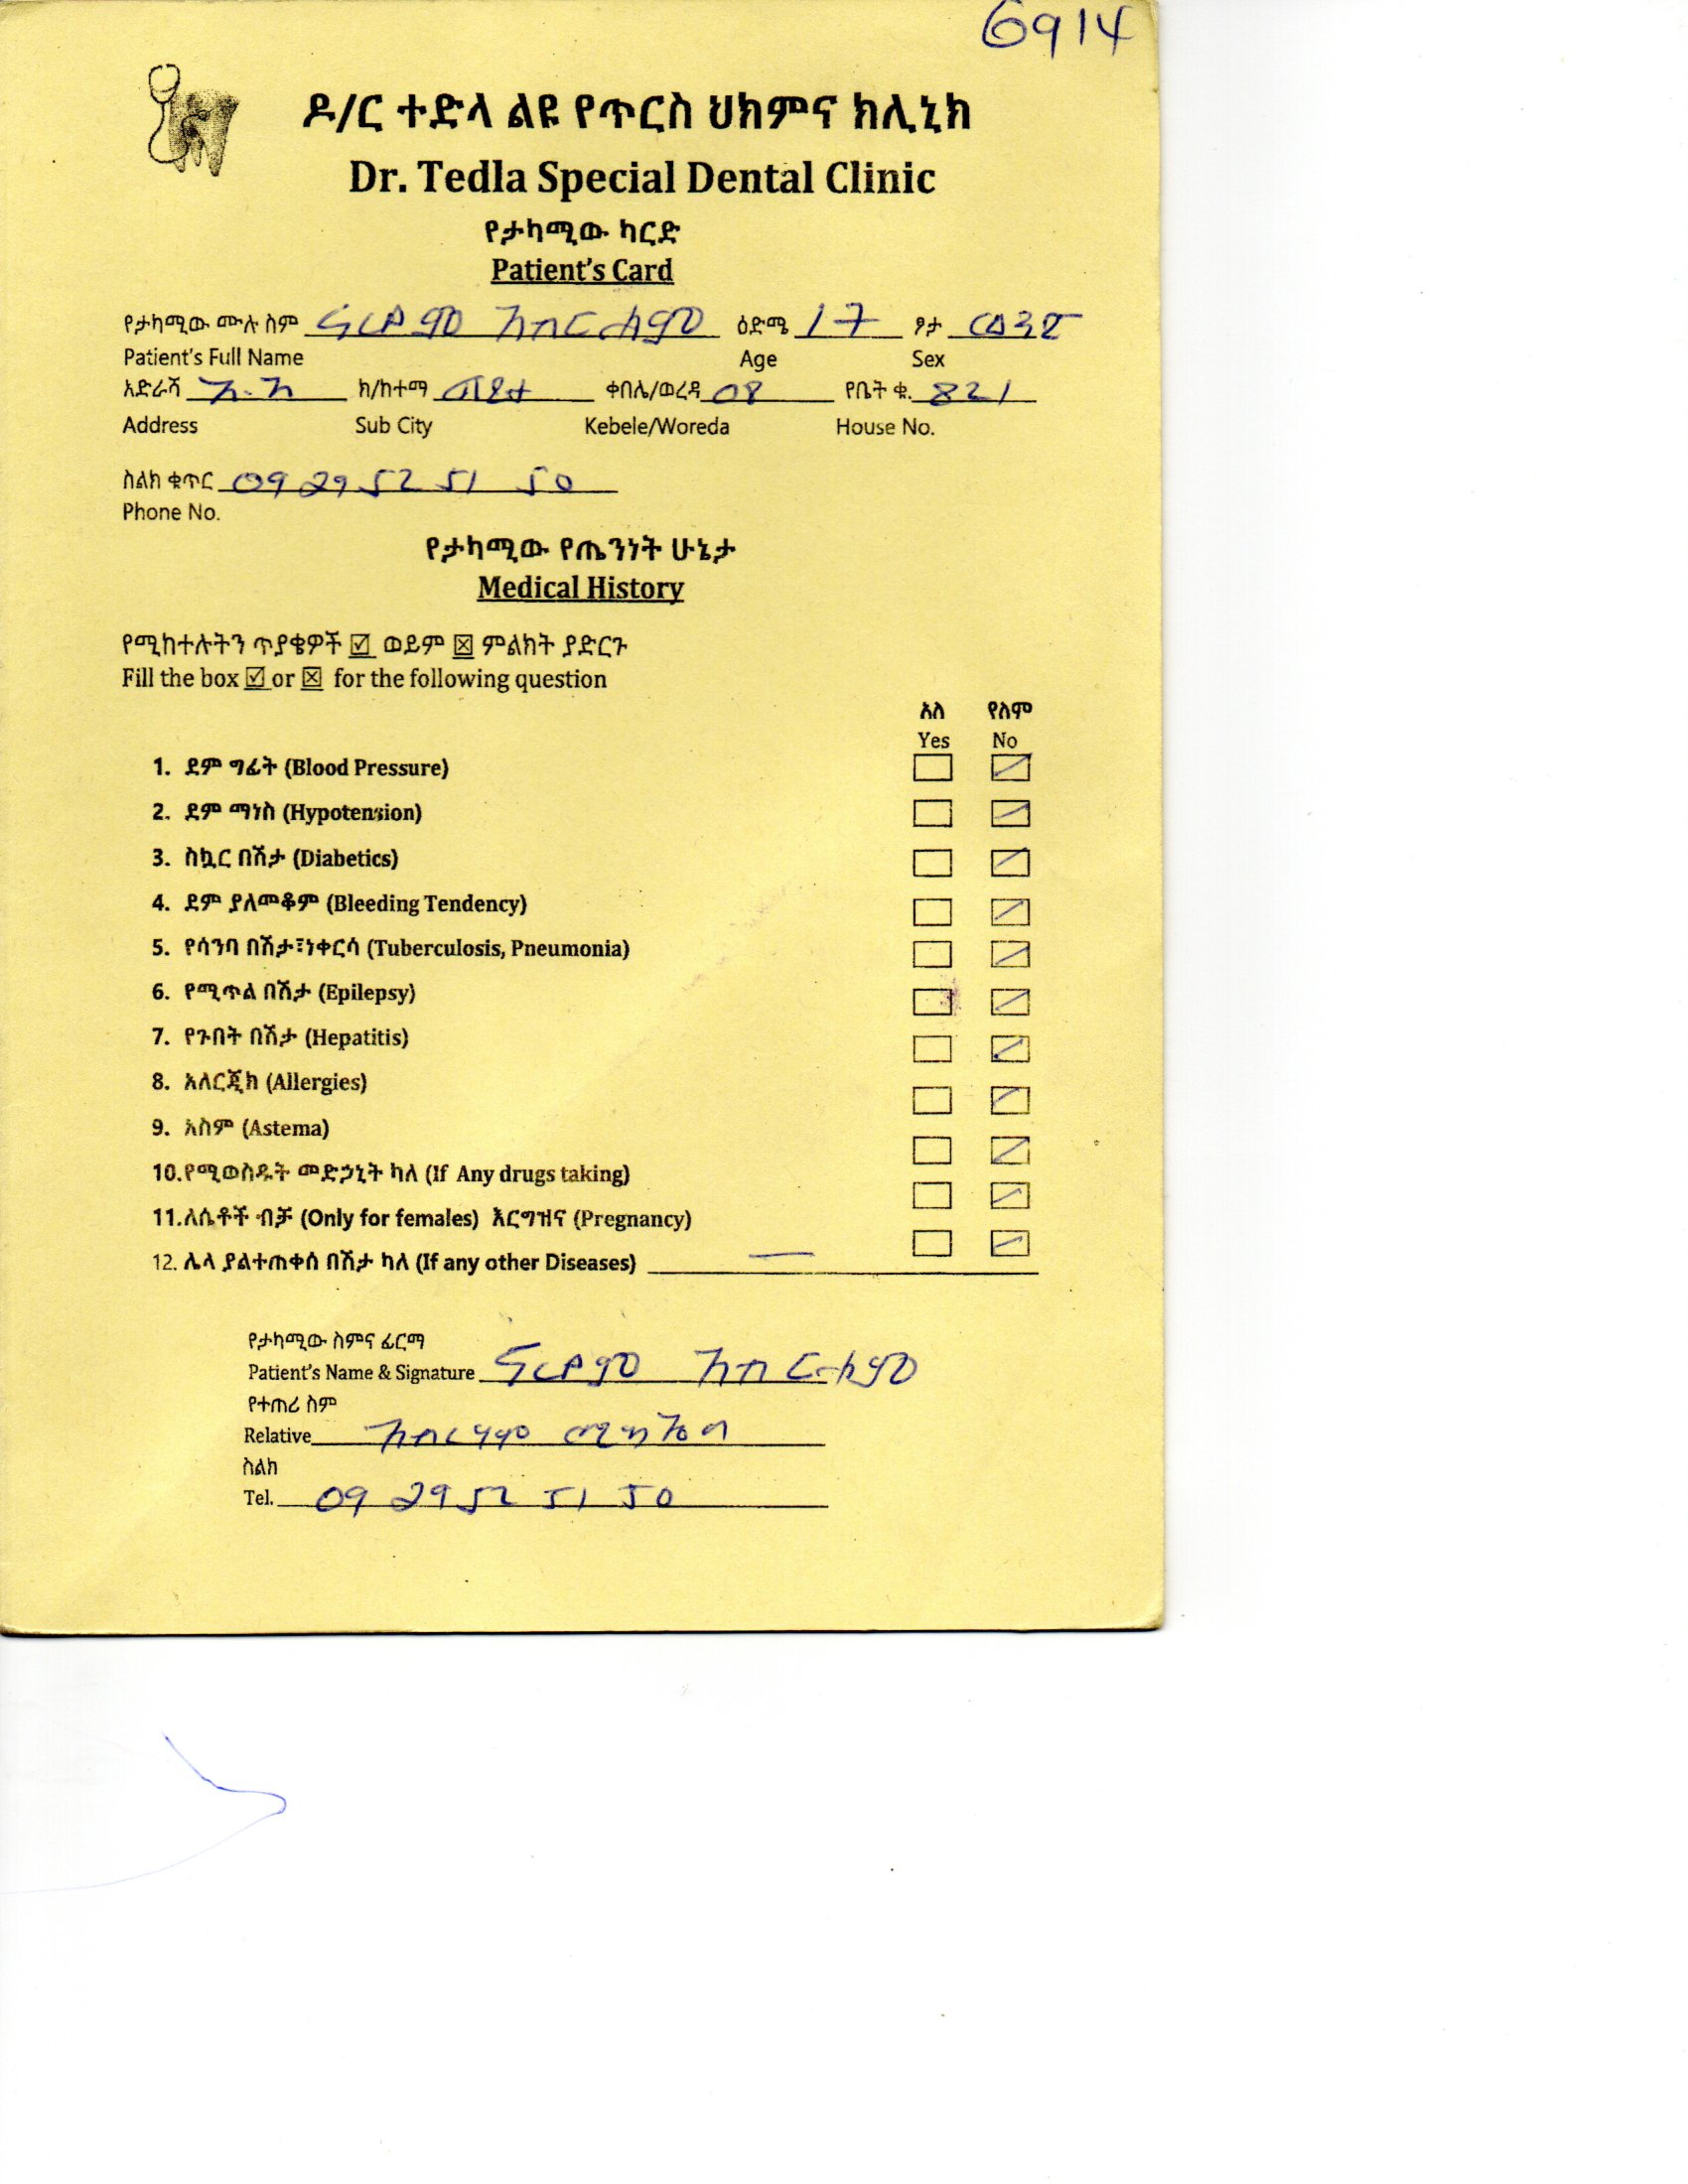 6914
ዶ/ር ተድላ ልዩ የጥርስ ህክምና ክሊኒክ
Dr. Tedla Special Dental Clinic
የታካሚው ካርድ
Patient's Card
የታካሚው ሙሉ ስም ዕድሜ 17 ፆታ ወንድ
Patient's Full Name Age Sex
አድራሻ አ.አ ክ/ከተማ ቀበሌ/ወረዳ 08 የቤት ቁ. 821
Address Sub City Kebele/Woreda House No.
ስልክ ቁጥር 09 29 52 51 50
Phone No.
የታካሚው የጤንነት ሁኔታ
Medical History
የሚከተሉትን ጥያቄዎች ☑ ወይም ☒ ምልክት ያድርጉ
Fill the box ☑ or ☒ for the following question
አለ የለም
Yes No
1. ደም ግፊት (Blood Pressure)
2. ደም ማነስ (Hypotension)
3. ስኳር በሽታ (Diabetics)
4. ደም ያለመቆም (Bleeding Tendency)
5. የሳንባ በሽታ፣ነቀርሳ (Tuberculosis, Pneumonia)
6. የሚጥል በሽታ (Epilepsy)
7. የጉበት በሽታ (Hepatitis)
8. አለርጂክ (Allergies)
9. አስም (Astema)
10.የሚወስዱት መድኃኒት ካለ (If Any drugs taking)
11.ለሴቶች ብቻ (Only for females) እርግዝና (Pregnancy)
12. ሌላ ያልተጠቀሰ በሽታ ካለ (If any other Diseases)
የታካሚው ስምና ፊርማ
Patient's Name & Signature
የተጠሪ ስም
Relative
ስልክ
Tel. 09 29 52 51 50